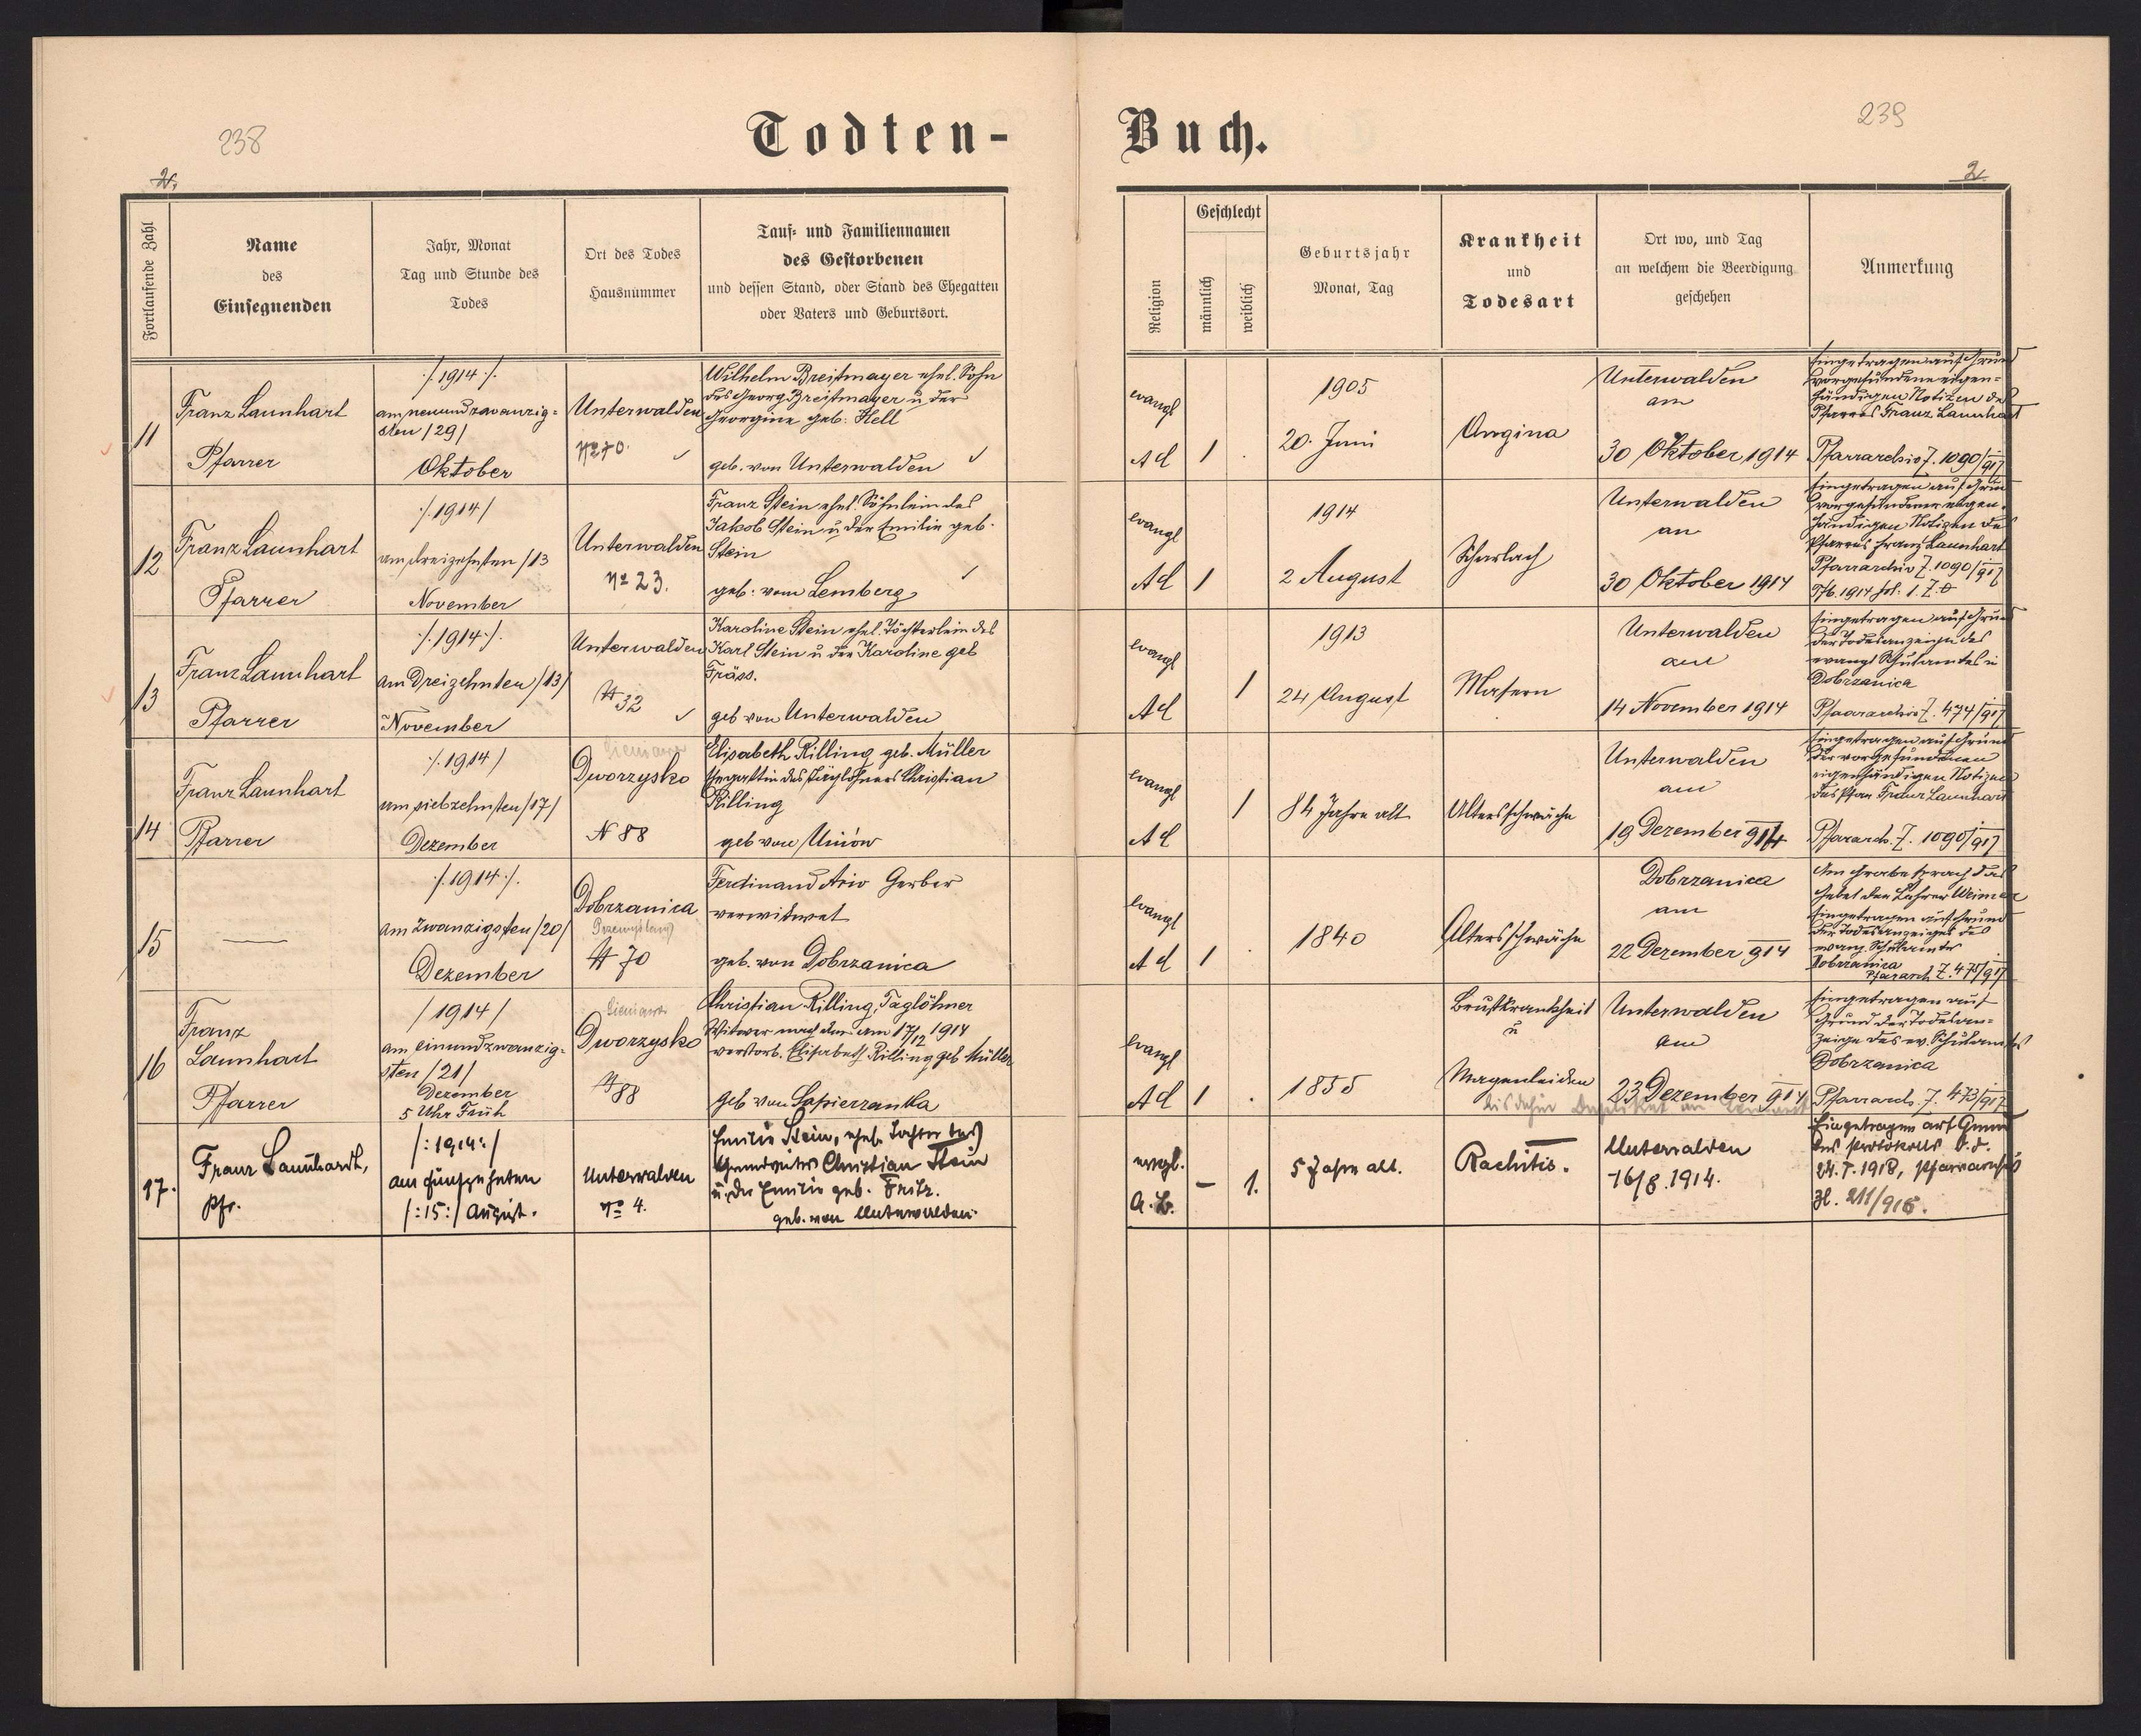 238
Todten-
Buch.
239
2.
2.
Fortlaufende Zahl
Name
des
Einsegnenden
Jahr, Monat
Tag und Stunde des
Todes
Ort des Todes
Hausnummer
Tauf- und Familiennamen
des Gestorbenen
und dessen Stand, oder Stand des Ehegatten
oder Vaters und Geburtsort.
Religion
Geschlecht
männlich
weiblich
Geburtsjahr
Monat, Tag
Krankheit
und
Todesart
Ort wo, und Tag
an welchem die Beerdigung
geschehen
Anmerkung
11
Franz Launhart
Pfarrer
/.1914./.
am neunundzwanzig-
sten /29/
Oktober
Unterwalden
No 70.
Wilhelm Breitmayer ehel. Sohn
des Georg Breitmayer u der
Georgine geb. Hell
geb. von Unterwalden
evangl
A C
1
1905
20. Juni
Angina
Unterwalden
am
30 Oktober 1914
Eingetragen auf Grund
vorgefundene eigen-
händigen Notizen des
Pfarres Franz Launhart
Pfarrarchiv Z. 1090/917
12
Franz Launhart
Pfarrer
/.1914/
am dreizehnten /13
November
Unterwalden
No 23.
Franz Stein ehel. Söhnlein des
Jakob Stein u der Emilie geb.
Stein
geb: vom Lemberg
evangl
A C
1
1914
2 August
Scharlach
Unterwalden
an
30 Oktober 1914
Eingetragen auf Grund
vorgefundener eigen-
händigen Notizen des
Pfarres Franz Launhart
Pfarrarchiv Z. 1090/917
1914 fol. 1. Z.
13
Franz Launhart
Pfarrer
/.1914./.
am Dreizehnten /13/
November
Unterwalden
N 32
Karoline Stein ehel. Töchterlein des
Karl Stein u der Karoline geb
Fräss.
geb von Unterwalden
evangl
A C
1
1913
24 August
Masern
Unterwalden
am
14 November 1914
Eingetragen auf Grund
der Todesanzeige des
evangl Schulamtes in
Dobrzanica
Pfaararchiv Z. 474/917
14
Franz Launhart
Pfarrer
/.1914/
am siebzehnten /17/
Dezember
Dworzysko
N 88
Elisabeth Rilling geb. Müller
Ehegattin des Taglöhners Christian
Rilling
geb von Uniów
evangl
A C
1
84 Jahre alt
Altersschwäche
Unterwalden
am
19 Dezember 914
Eingetragen auf Grund
der vorgefundenen
eigenhändigen Notizen
des Pfar Franz Launhart
Pfararch. Z. 1090/917
15
—
/.1914./.
am Zwanzigsten /20/
Dezember
Dobrzanica
Przemyslany
N 70
Ferdinand Gerber
verwitwet
geb. von Dobrzanica
evangl
A C
1
1840
Altersschwäche
Dobrzanica
am
22 Dezember 914
Am Grabe sprach das
Gebet der Lehrer Weimer
Eingetragen auf Grund
der Todesanzeiges des
evang. Schulamtes
Dobrzanica
Pfararch Z. 475/917
16
Franz
Launhart
Pfarrer
/1914/
am einundzwanzig-
sten /21/
Dezember
5 Uhr Früh
Dworzysko
N 88
Christian Rilling, Taglöhner
Witwer nach der am 17/12 1914
verstorb. Elisabeth Rilling geb Müller
geb von Sapierzanka
evangl
A C
1
1855
Brustkrankheit
u
Magenleiden
Unterwalden
am
23 Dezember 914
Eingetragen auf
Grund der Todesan-
zeige des ev. Schulamtes
Dobrzanica
Pfararch. Z. 473/917
bis dahin Duplikat
17.
Franz Launhardt,
Pfr.
/:1914:/
am fünfzehnten
/:15:/ August.
Unterwalden
No 4.
Emilie Stein, ehel. Tochter des
Grundwirtes Christian Stein
u. der Emilie geb. Fritz.
geb. von Unterwalden.
evgl.
A. B.
—
1.
5 Jahre alt.
Rachitis.
Unterwalden
16/8.1914.
Eingetragen auf Grund
des Protokolls v. d.
24.5.1918, Pfarrarchivs
Zl. 211/918.